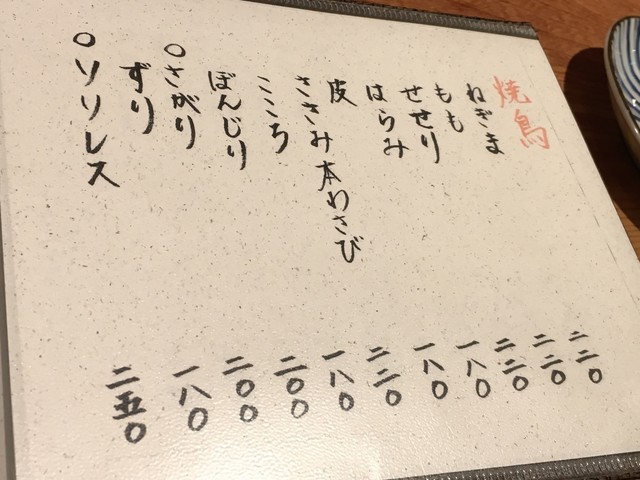 焼鳥
ねぎま 二二〇
もも 二二〇
せせり 二二〇
はらみ 一八〇
皮 一八〇
ささみ本わさび 二二〇
こころ 一八〇
ぼんじり 二〇〇
○さがり 二〇〇
ずり 一八〇
○ソリレス 二五〇